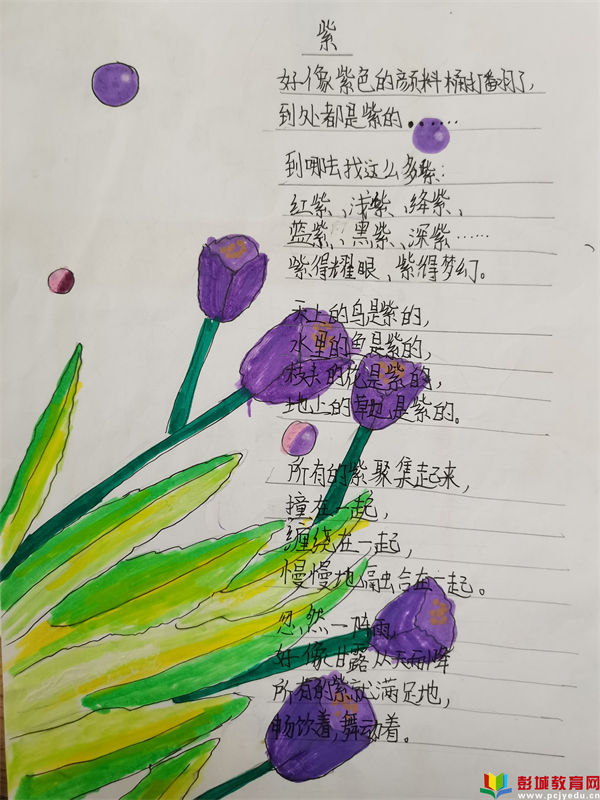 紫
好像紫色的颜料桶打翻了,
到处都是紫的……
到哪去找这么多紫:
红紫、浅紫、绛紫、
蓝紫、黑紫、深紫……
紫得耀眼、紫得梦幻。
天上的鸟是紫的,
水里的鱼是紫的,
枝头的花是紫的,
地上的草也是紫的。
所有的紫聚集起来,
撞在一起,
缠绕在一起,
慢慢地融合在一起。
忽然一阵雨,
好像甘露从天而降
所有的紫就满足地,
畅饮着,舞动着。
彭城教育网
www.pcjyedu.cn